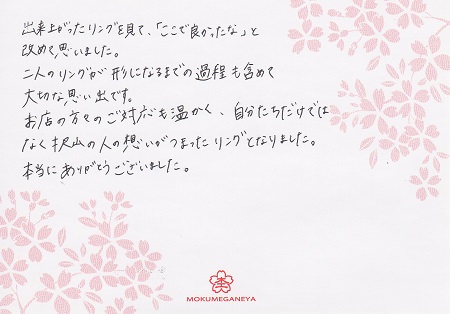 出来上がったリングを見て、「ここで良かったな」と
改めて思いました。
二人のリングが形になるまでの過程も含めて
大切な思い出です。
お店の方々のご対応も温かく、自分たちだけでは
なく沢山の人の想いがつまったリングとなりました。
本当にありがとうございました。
MOKUMEGANEYA